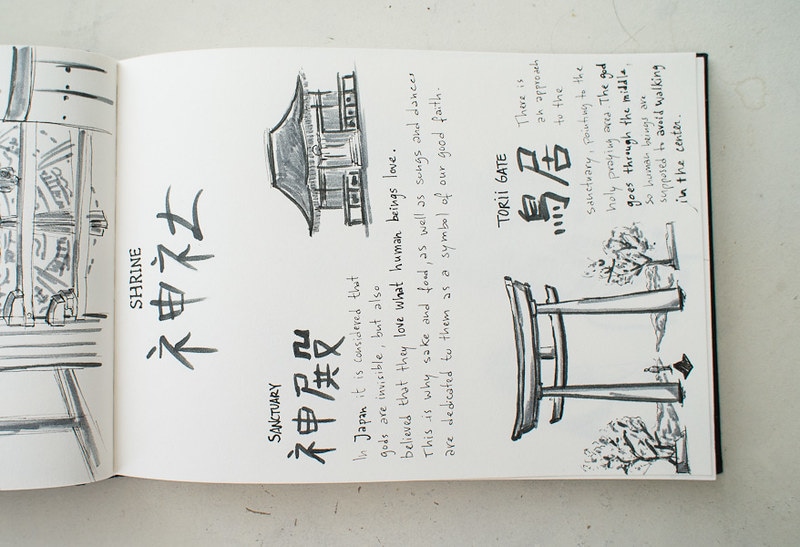 SHRINE
神社
SANCTUARY
神殿
In Japan it is considered that
gods are invisible, but also
believed that they love what human beings love.
This is why sake and food, as well as songs and dances
are dedicated to them as a symbol of our good faith.
TORII GATE
鳥居
There is
an approach
to the
sanctuary, pointing to the
holy praying area. The god
goes through the middle,
so human beings are
supposed to avoid walking
in the center.